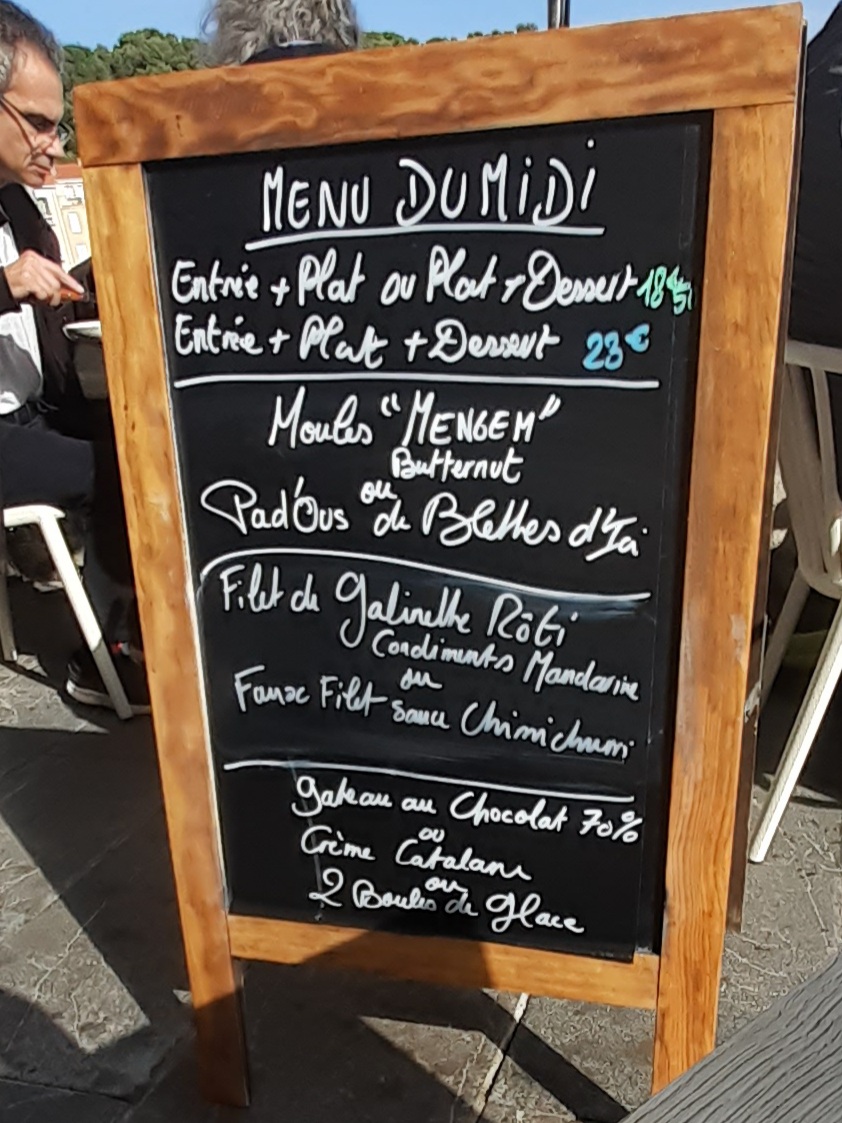 MENU DU MiDi
Entrée + Plat ou Plat + Dessert 18€5
Entrée + Plat + Dessert 23€
Moules "MENGEM"
Butternut
ou
Pad'Ous de Blettes d'Ici
Filet de Galinette Rôti
Condiments Mandarine
ou
Filet sauce Chimichurri
gateau au Chocolat 70%
ou
Crème Catalane
ou
2 Boules de glace